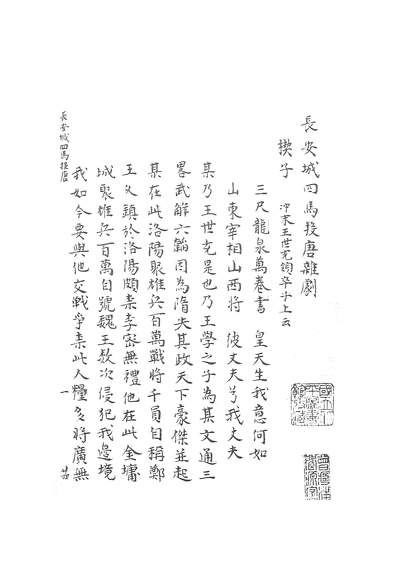 長安城四馬投唐雜劇
楔子 冲末王世充領卒子上云
三尺龍泉萬卷書 皇天生我意何如
山東宰相山西將 彼丈夫兮我丈夫
某乃王世充是也乃王學之子為某文通三
畧武解六韜因為隋失其政天下豪傑並起
某在此洛陽聚雄兵百萬戰將千員自稱鄭
王久鎮於洛陽頗柰李密無禮他在此金墉
城聚雄兵百萬自號魏王數次侵犯我邊境
我如今要與他交戰爭柰此人糧多將廣無
長安城四馬投唐
一